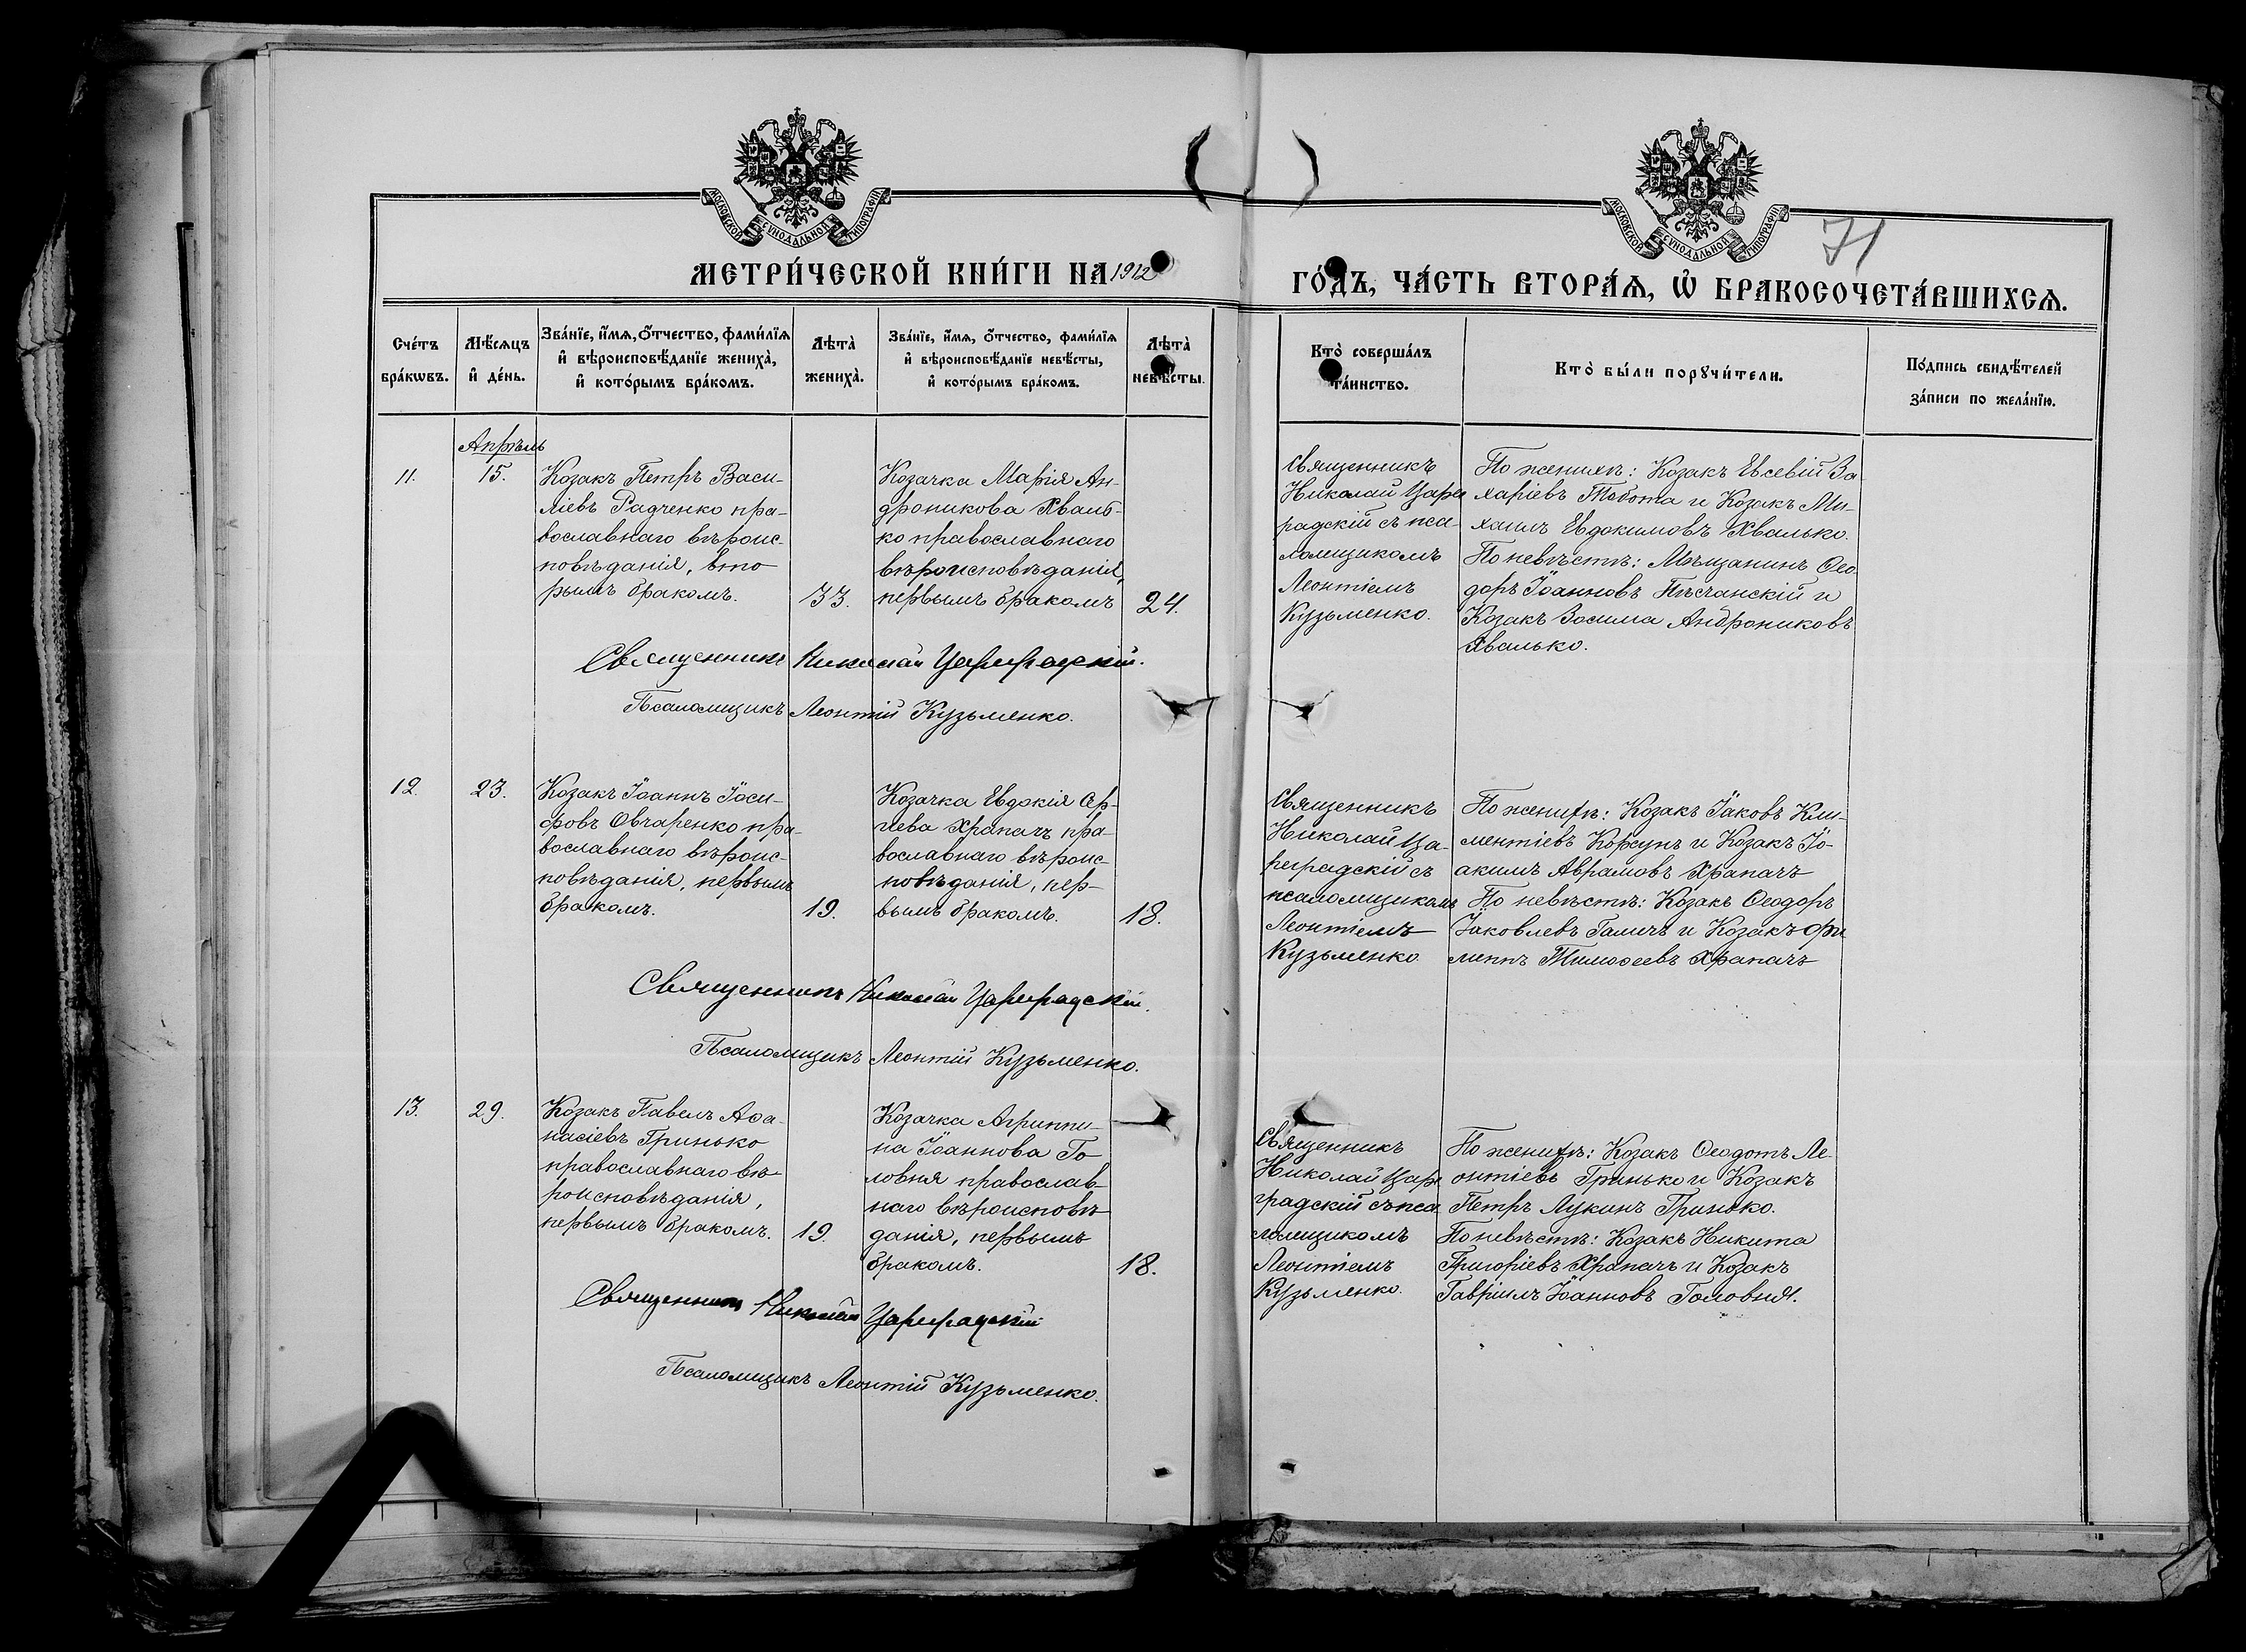 МОСКОВСКОЙ СУНОДАЛЬНОЙ ТИПОГРАФІИ
МОСКОВСКОЙ СУНОДАЛЬНОЙ ТИПОГРАФІИ
71
МЕТРИ́ЧЕСКОЙ КНИ́ГИ НА 1912
ГО́ДЪ, ЧА́СТЬ ВТОРА́Ѧ, Ѡ҆ БРАКОСОЧЕТА́ВШИХСѦ.
Сче́тъ бра́кѡвъ.
Мѣ́сяцъ и҆ де́нь.
Зва́нїе, и҆́мѧ, ѻ҆́тчество, фами́лїѧ и҆ вѣроисповѣ́данїе жениха̀, и҆ кото́рымъ бра́комъ.
Лѣта̀ жениха̀.
Зва́нїе, и҆́мѧ, ѻ҆́тчество, фами́лїѧ и҆ вѣроисповѣ́данїе невѣ́сты, и҆ кото́рымъ бра́комъ.
Лѣта̀ невѣ́сты.
Кто̀ соверша́лъ та́инство.
Кто̀ бы́ли порꙋчи́тели.
По́дпись свидѣ́телей за́писи по жела́нїю.
Апрѣль
11.
15.
Козакъ Петръ Васи-
ліевъ Радченко пра-
вославнаго вѣроис-
повѣданія, вто
рымъ бракомъ.
33.
Козачка Марія Ан-
дроникова Хваль-
ко православнаго
вѣроисповѣданія,
первымъ бракомъ
24.
Священникъ
Николай Царе
градскій съ пса-
ломщикомъ
Леонтіемъ
Кузьменко.
По женихѣ: Козакъ Евсевій За
харіевъ Тобота и Козакъ Ми-
хаилъ Евдокимовъ Хвалько.
По невѣстѣ: Мѣщанинъ Ѳео
доръ Іоанновъ Пѣсчанскій и
Козакъ Зосима Андрониковъ
Хвалько.
Священникъ Николай Цареградскій.
Псаломщикъ Леонтій Кузьменко.
12.
23.
Козакъ Іоаннъ Іоси-
фовъ Овчаренко пра-
вославнаго вѣроис-
повѣданія, первымъ
бракомъ.
19.
Козачка Евдокія Сер-
гіева Храпачъ пра-
вославнаго вѣроис-
повѣданія, пер-
вымъ бракомъ.
18.
Священникъ
Николай Ца-
реградскій съ
псаломщикомъ
Леонтіемъ
Кузьменко.
По женихѣ: Козакъ Іаковъ Кли-
ментіевъ Корсунъ и Козакъ Іо-
акимъ Аврамовъ Храпачъ
По невѣстѣ: Козакъ Ѳеодоръ
Іаковлевъ Галичъ и Козакъ Фи
липпъ Тимоѳеевъ Храпачъ
Священникъ Николай Цареградскій.
Псаломщикъ Леонтій Кузьменко.
13.
29.
Козакъ Павелъ Аѳа-
насіевъ Гринько
православнаго вѣ
роисповѣданія,
первымъ бракомъ.
19.
Козачка Агриппи-
на Іоаннова Го
ловня православ-
наго вѣроисповѣ
данія, первымъ
бракомъ.
18.
Священникъ
Николай Царе
градскій съ пса
ломщикомъ
Леонтіемъ
Кузьменко.
По женихѣ: Козакъ Ѳеодотъ Ле-
онтіевъ Гринько и Козакъ
Петръ Лукинъ Гринько.
По невѣстѣ: Козакъ Никита
Григоріевъ Храпачъ и Козакъ
Гавріилъ Іоанновъ Головня.
Священникъ Николай Цареградскій
Псаломщикъ Леонтій Кузьменко.